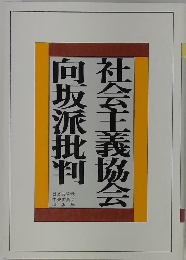 社会主義協会
向坂派批判